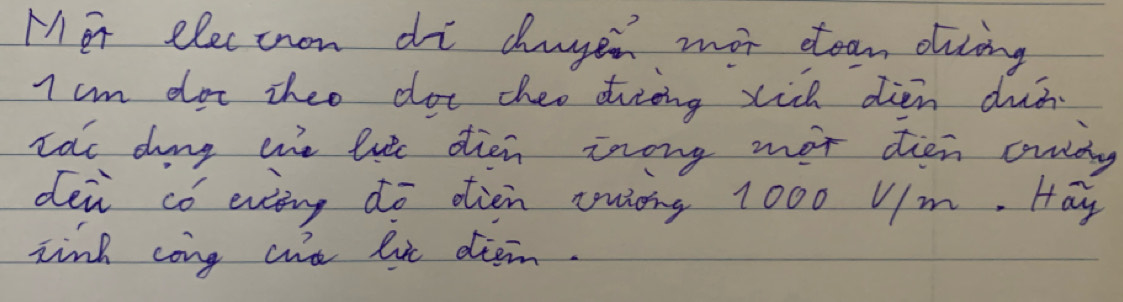 Một elec tron di chuyển một đoạn đường
1 cm dọc theo dọc theo đường xích điện dưới
tác dụng của lực điện trong một điện trường
đều có cường độ điện trường 1000 V/m. Hãy
tính công của lực điện.